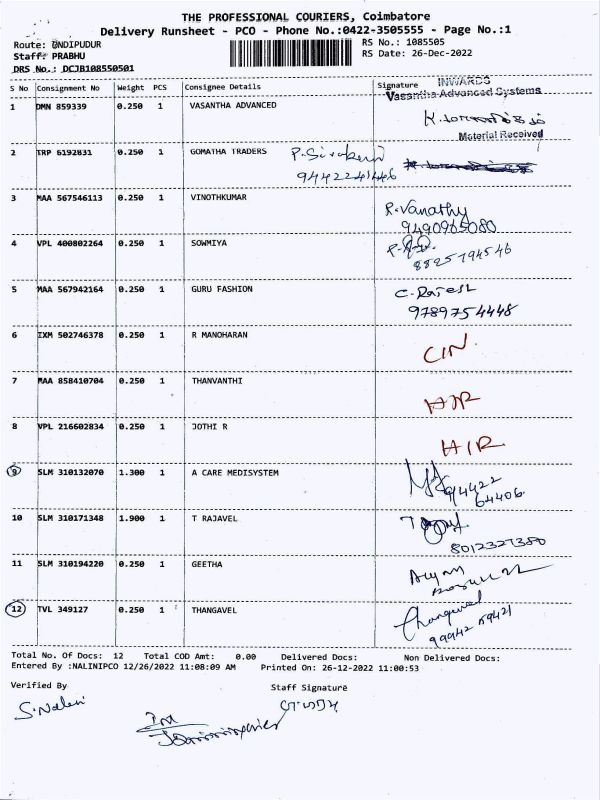 THE PROFESSIONAL COURIERS, Coimbatore
Delivery Runsheet - PCO - Phone No.:0422-3505555 - Page No.:1
Route: UNDIPUDUR
RS No.: 1085505
Staff: PRABHU
RS Date: 26-Dec-2022
DRS No.: DCJB108550501
S No Consignment No Weight PCS Consignee Details Signature
INWARDS
Vasantha Advanced Systems
1 DMN 859339 0.250 1 VASANTHA ADVANCED
Material Received
2 TRP 6192831 0.250 1 GOMATHA TRADERS
3 MAA 567546113 0.250 1 VINOTHKUMAR R.Vanathy
9490965080
4 VPL 400802264 0.250 1 SOWMIYA
8825794546
5 MAA 567942164 0.250 1 GURU FASHION C.Rajesh
9789754448
6 IXM 502746378 0.250 1 R MANOHARAN CIN.
7 MAA 858410704 0.250 1 THANVANTHI
8 VPL 216602834 0.250 1 JOTHI R HIR
9 SLM 310132070 1.300 1 A CARE MEDISYSTEM 94422
64406
10 SLM 310171348 1.900 1 T RAJAVEL
8012327380
11 SLM 310194220 0.250 1 GEETHA
12 TVL 349127 0.250 1 THANGAVEL Thangavel
Total No. Of Docs: 12 Total COD Amt: 0.00 Delivered Docs: Non Delivered Docs:
Entered By :NALINIPCO 12/26/2022 11:08:09 AM Printed On: 26-12-2022 11:00:53
Verified By Staff Signature
S.Nalini